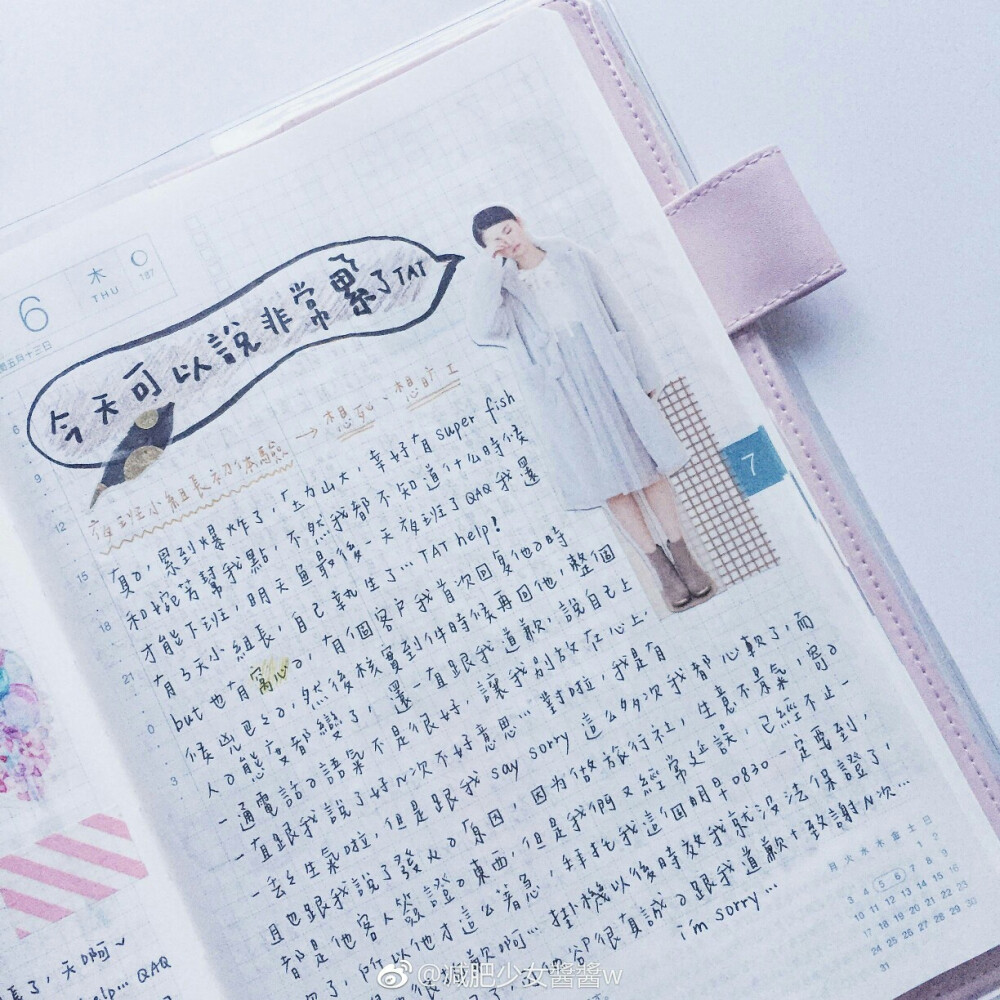 6
木
THU
187
五月十三日
今天可以說非常累了TAT
夜班小組長初体驗
→想死、想曠工
真的, 累到爆炸了, 压力山大, 幸好有super fish
和婉若幫我點, 不然我都不知道什么時候
才能下班, 明天鱼最後一天夜班了QAQ我還
有3天小組長, 自己執生了… TAT help!
but也有窩心的, 有個客戶我首次回复他的時
候兇巴巴的, 然後核實到件時候再回他, 整個
人的態度都變了, 還一直跟我道歉, 說自己上
一通電話的語氣不是很好, 讓我别放在心上
一直跟我說了好N次不好意思… 對啦, 我是有
一丢丢生氣啦, 但是跟我say sorry這么多次我都心軟了, 而
且也跟我說了發火的原因, 因为做旅行社, 生意不景氣, 寄的
都是他客人簽證的東西, 但是我們又經常延誤, 已經不止一
次了, 所以他才這么著急, 拜托我這個明早0830一定要到,
歉啊… 掛機以後時效我就没法保證了,
卻很真誠的跟我道歉+致謝N次…
i'm sorry…
6
9
12
15
18
21
0
3
7
月 火 水 木 金 土 日
1 2
3 4 5 6 7 8 9
10 11 12 13 14 15 16
17 18 19 20 21 22 23
24 25 26 27 28 29 30
31
了, 天啊~
help… QAQ
@减肥少女醬醬w